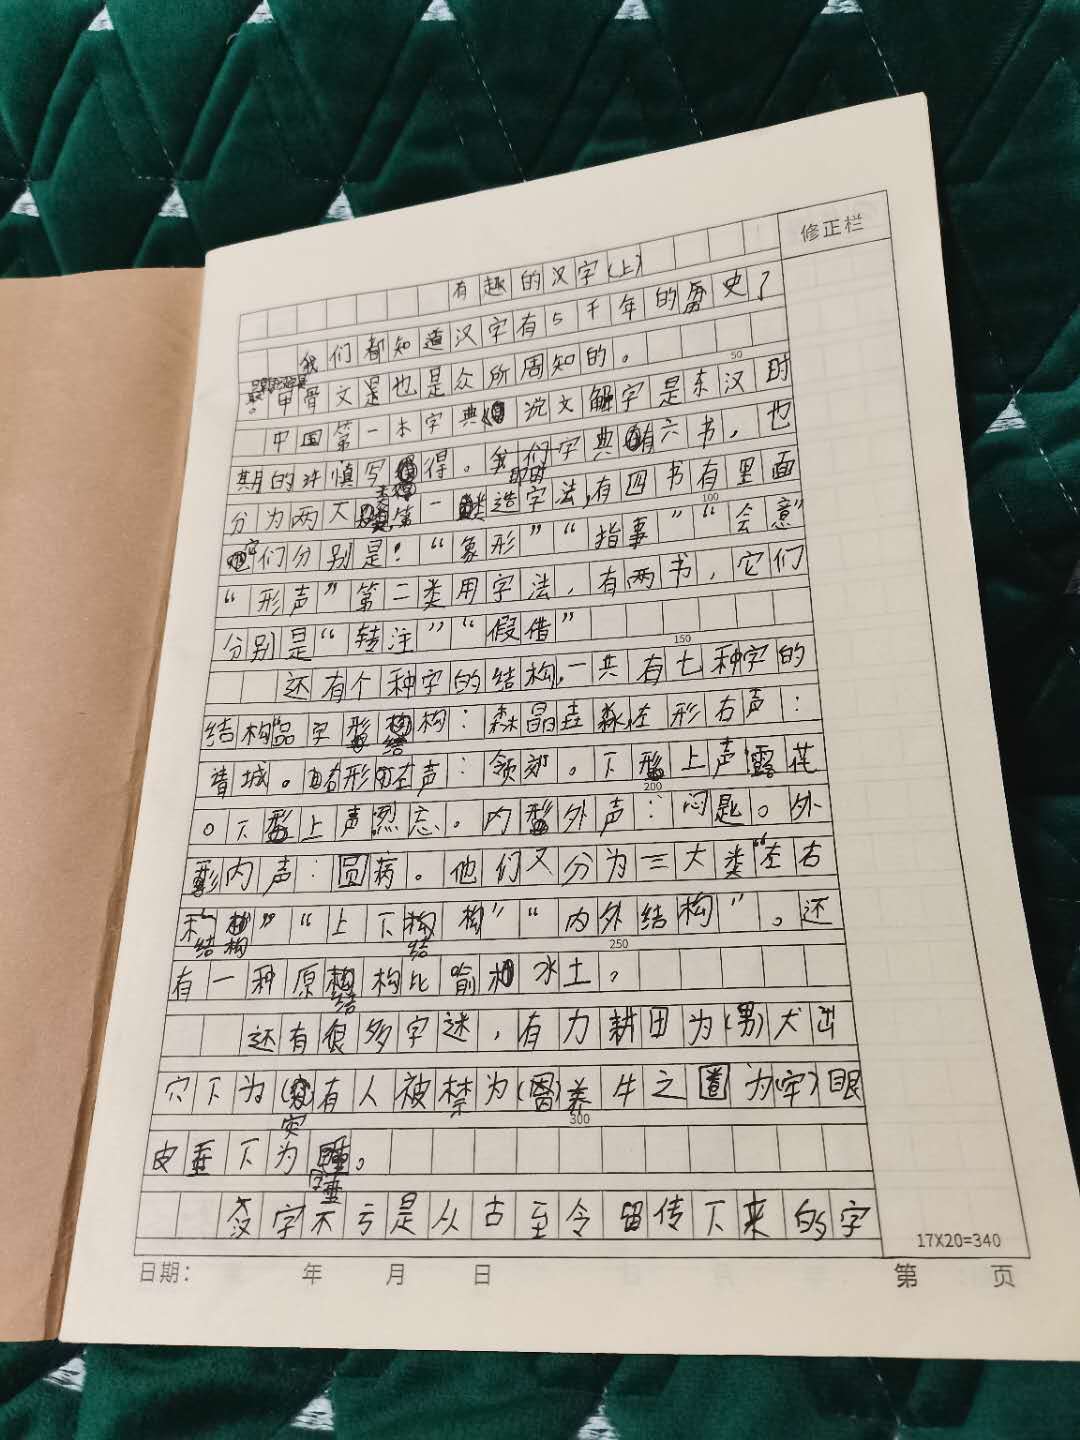 修正栏
有趣的汉字(上)
我们都知道汉字有5千年的历史了
甲骨文是也是众所周知的。
50
中国第一本字典《说文解字是东汉时
期的许慎写得。我们字典有六书，也
分为两大类第一类造字法,有四书有里面
100
它们分别是！“象形”“指事”“会意”
“形声”第二类用字法，有两书，它们
分别是“转注”“假借”
150
还有个种字的结构,一共有七种字的
结构品字形结构：森晶垚淼左形右声：
请城。右形左声：领郊。下形上声露花
200
。下形上声烈忘。内形外声：闷匙。外
形内声：圆病。他们又分为三大类“左右
结构”“上下结构”“内外结构”。还
250
有一种原结构比喻 水土。
还有很多字迷，有力耕田为(男)犬出
穴下为(突有人被禁为(囚)养牛之圈为(牢)眼
300
皮垂下为睡。
汉字不亏是从古至今留传下来的字
17X20=340
日期： 年 月 日 第 页